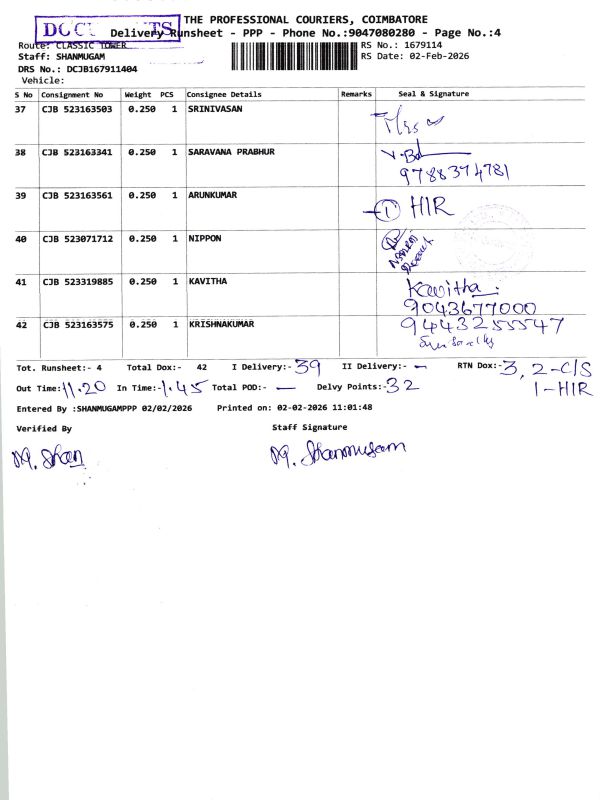 THE PROFESSIONAL COURIERS, COIMBATORE
Delivery Runsheet - PPP - Phone No.:9047080280 - Page No.:4
Route: CLASSIC TOWER
RS No.: 1679114
Staff: SHANMUGAM
RS Date: 02-Feb-2026
DRS No.: DCJB167911404
Vehicle:
S No Consignment No Weight PCS Consignee Details Remarks Seal & Signature
37 CJB 523163503 0.250 1 SRINIVASAN
38 CJB 523163341 0.250 1 SARAVANA PRABHUR
9788374781
39 CJB 523163561 0.250 1 ARUNKUMAR
1 HIR
40 CJB 523071712 0.250 1 NIPPON
41 CJB 523319885 0.250 1 KAVITHA Kavitha:
9043677000
42 CJB 523163575 0.250 1 KRISHNAKUMAR 9443255547
Tot. Runsheet:- 4 Total Dox:- 42 I Delivery:- 39 II Delivery:- — RTN Dox:- 3, 2-C/S
Out Time: 11.20 In Time:- 1.45 Total POD:- — Delvy Points:- 32 1-HIR
Entered By :SHANMUGAMPPP 02/02/2026 Printed on: 02-02-2026 11:01:48
Verified By Staff Signature
M. Shan M. Shanmugam